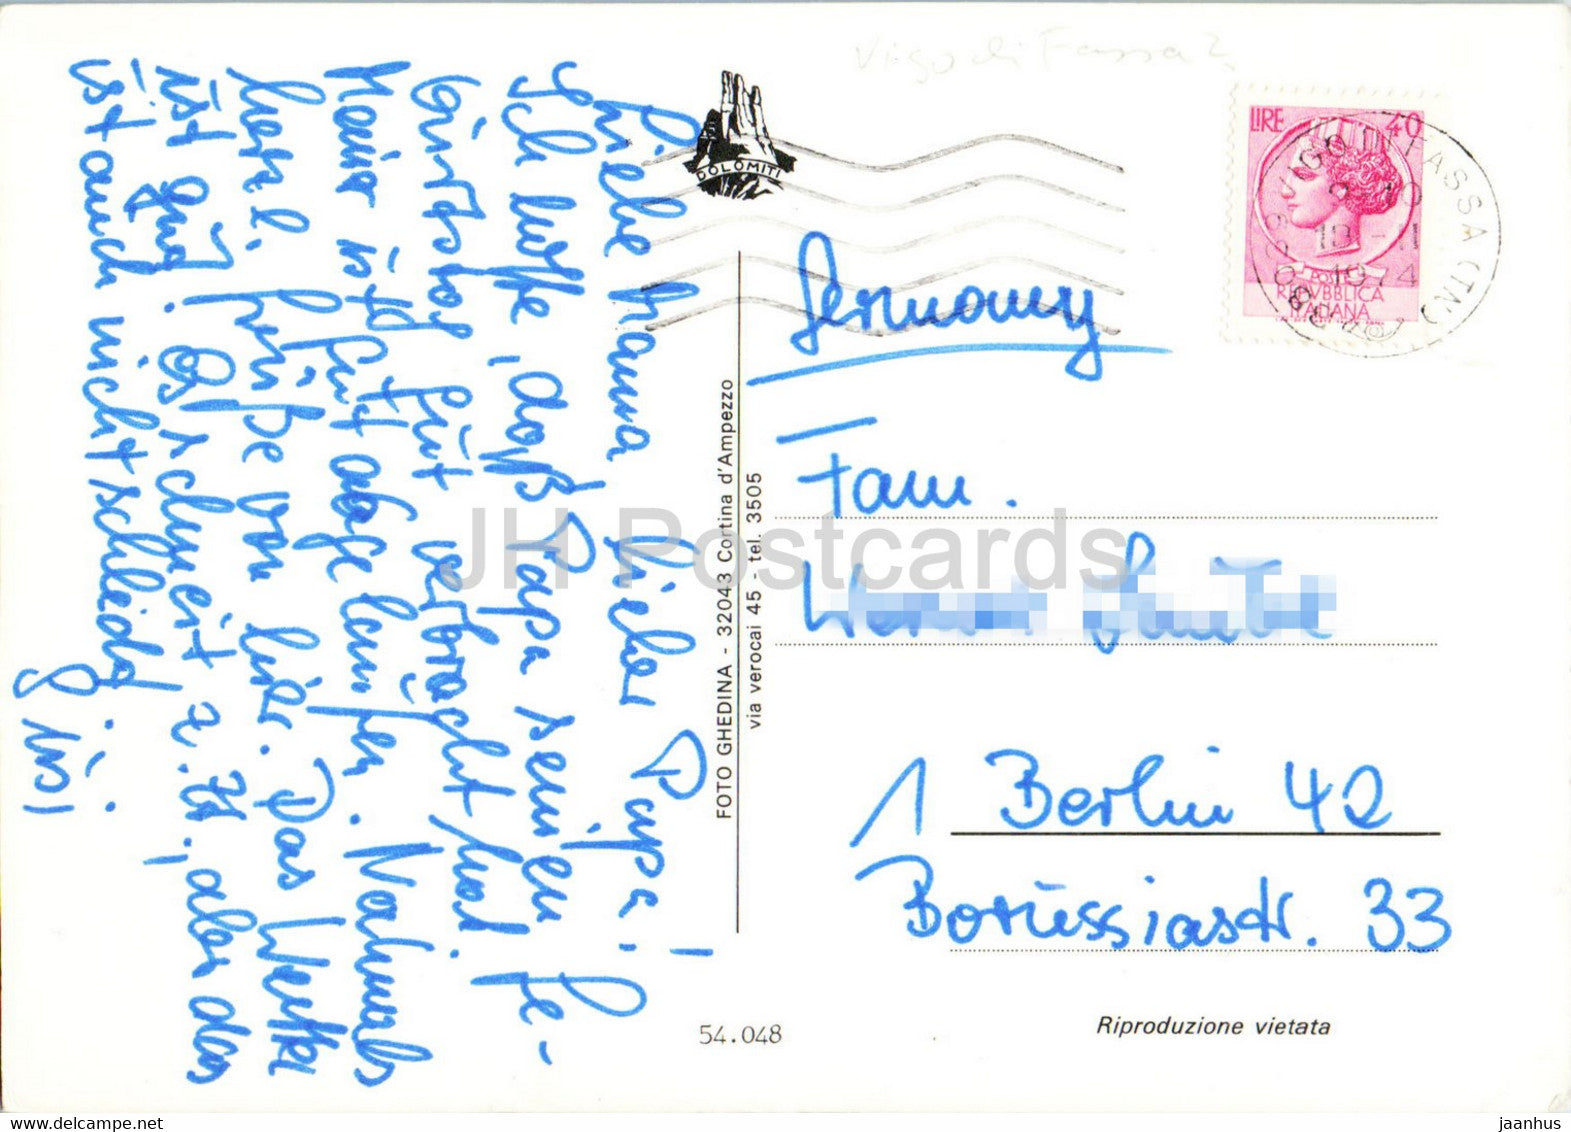 Liebe Mama, lieber Papa!
Ich hoffe, daß Papa seinen Ge-
burtstag gut verbracht hat.
Meiner ist gut abgelaufen. Nochmals
herzl. Grüße von hier. Das Wetter
ist gut. Es schneit z. Zt., aber das
ist auch nicht schlecht.
Sigi
Vigo di Fassa?
DOLOMITI
LIRE 40
POSTE
REPVBBLICA
ITALIANA
VIGO DI FASSA (TN)
1974
Germany
Fam.
1 Berlin 42
Borussiastr. 33
FOTO GHEDINA - 32043 Cortina d'Ampezzo
via verocai 45 - tel. 3505
54.048
Riproduzione vietata
JH Postcards
www.delcampe.net
jaanhus